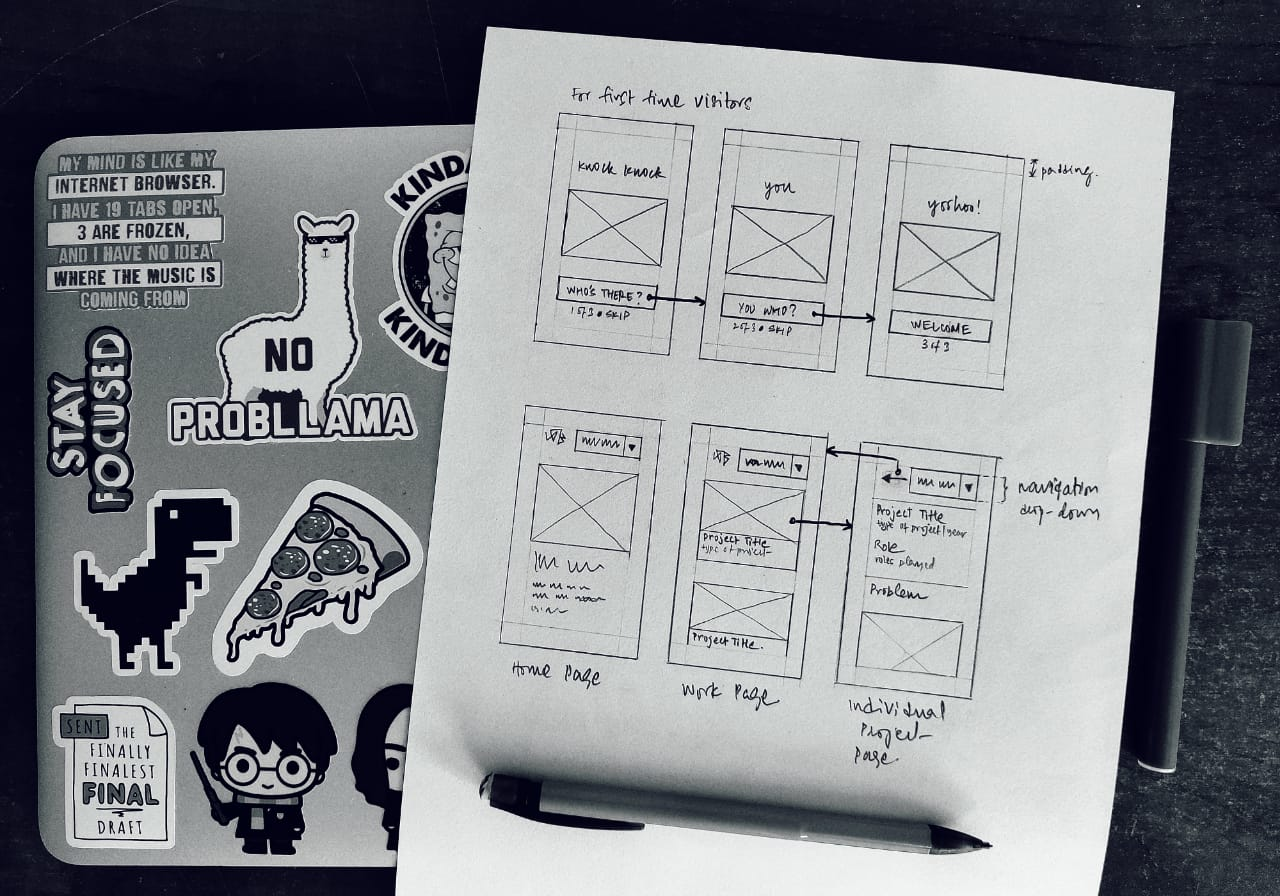 MY MIND IS LIKE MY
INTERNET BROWSER.
I HAVE 19 TABS OPEN,
3 ARE FROZEN,
AND I HAVE NO IDEA
WHERE THE MUSIC IS
COMING FROM
NO
PROBLLAMA
STAY
FOCUSED
KINDA
KIND
SENT
THE
FINALLY
FINALEST
FINAL
DRAFT
For first time visitors
knock knock
WHO'S THERE?
1 of 3 • SKIP
you
YOU WHO?
2 of 3 • SKIP
yoohoo!
WELCOME
3 of 3
padding.
Home Page
Project Title
type of project
Project Title.
Work Page
Project Title
type of project/year
Role
roles played
Problem
Individual
Project
Page
navigation
drop-down